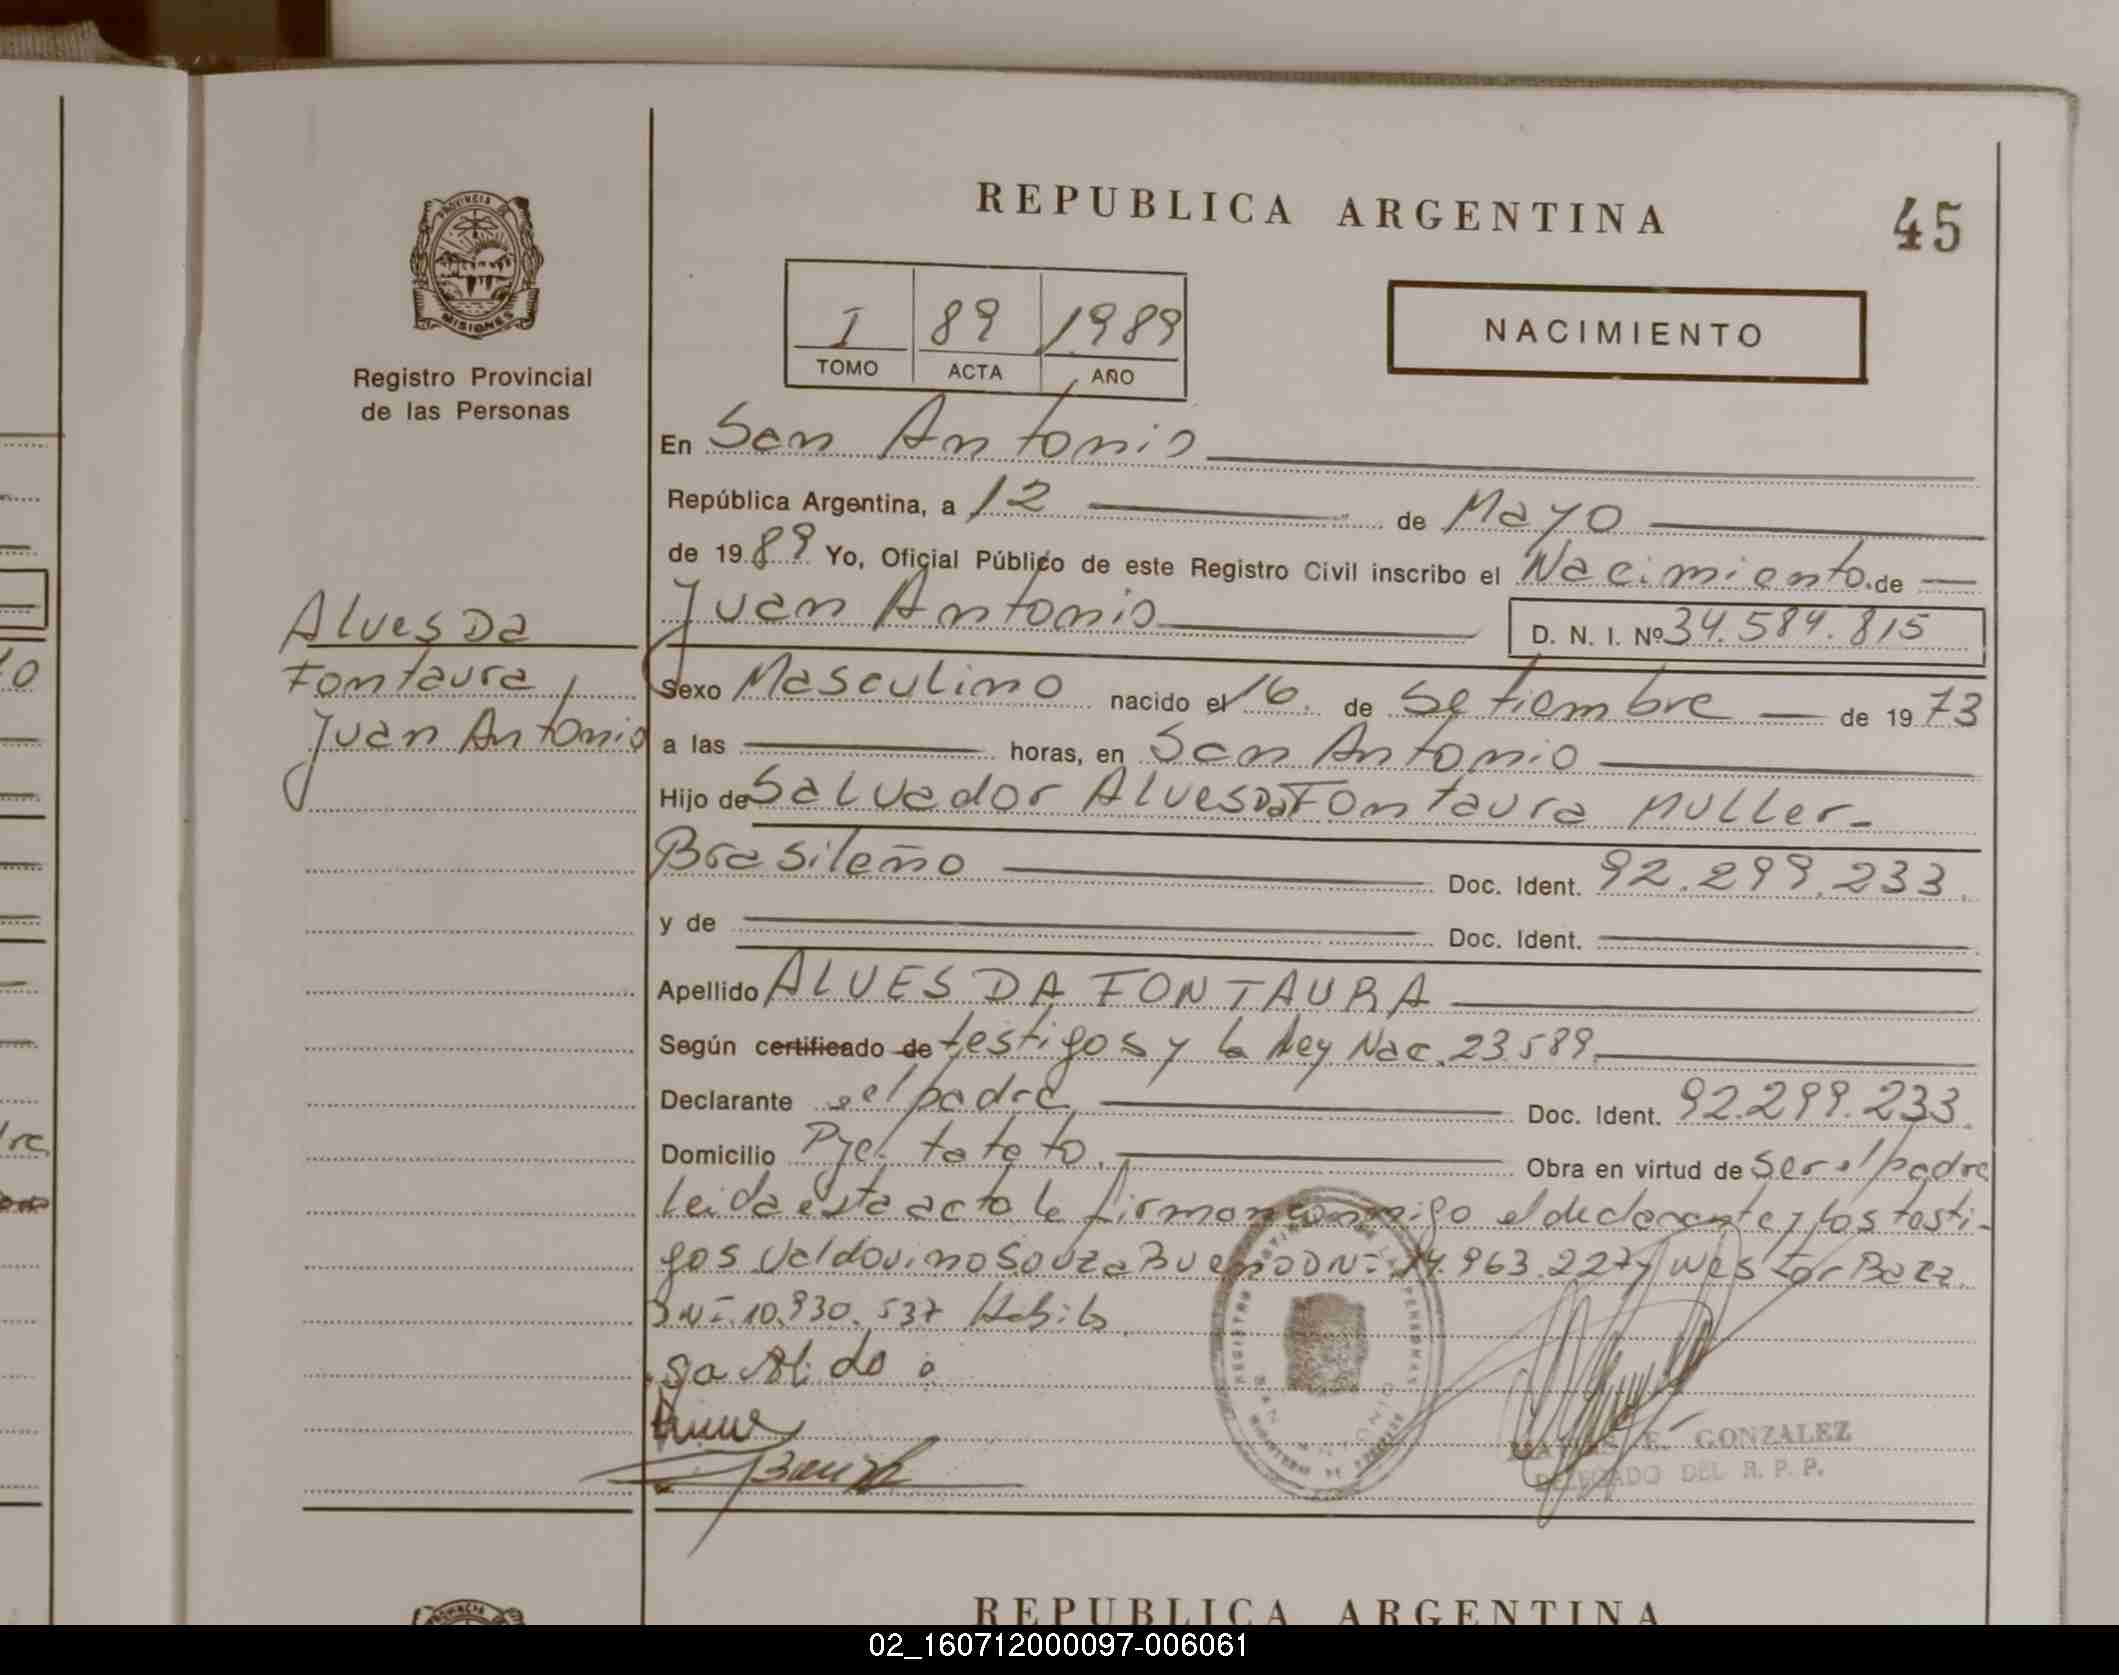 REPUBLICA ARGENTINA
45
PROVINCIA DE
MISIONES
Registro Provincial
de las Personas
I 89 1989
TOMO ACTA AÑO
NACIMIENTO
En San Antonio
República Argentina, a 12 de Mayo
de 1989 Yo, Oficial Público de este Registro Civil inscribo el Nacimiento de
Juan Antonio D. N. I. Nº 34.584.815
Alves Da
Fontaura,
Juan Antonio
Sexo Masculino nacido el 16 de Setiembre de 1973
a las horas, en San Antonio
Hijo de Salvador Alves Da Fontaura Muller-
Brasileño Doc. Ident. 92.299.233
y de Doc. Ident.
Apellido ALVES DA FONTAURA
Según certificado de testigos y la Ley Nac. 23.589
Declarante el padre Doc. Ident. 92.299.233
Domicilio Pje. tateto. Obra en virtud de ser el padre
leida esta acta la firman conmigo el declarante y los testi-
gos Valdovino Souza Bueno DNI 14.963.227 y Nestor Baez
DNI 10.930.537 Habil
REGISTRO PROVINCIAL DE LAS PERSONAS
SAN ANTONIO
E. GONZALEZ
DELEGADO DEL R. P. P.
REPUBLICA ARGENTINA
02_160712000097-006061